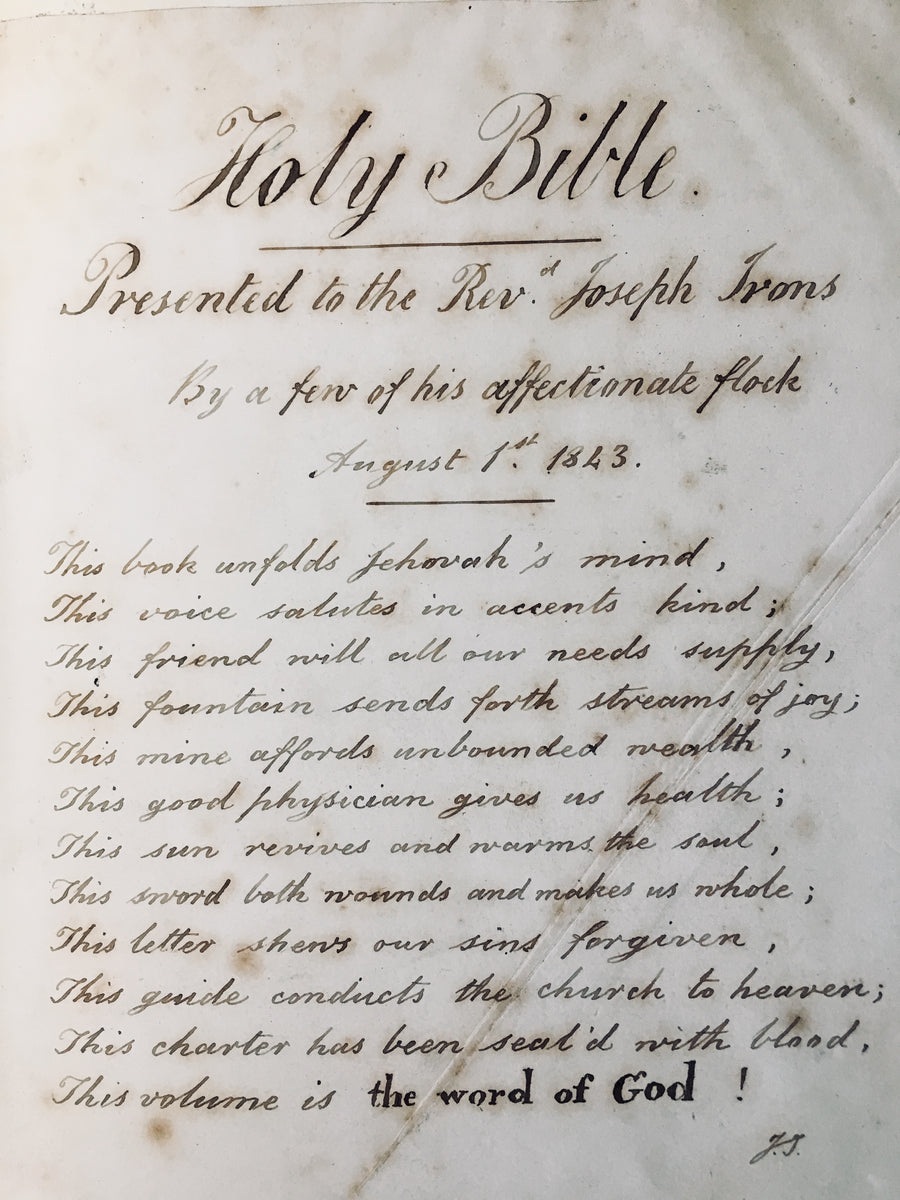 Holy Bible.
Presented to the Rev.d Joseph Irons
By a few of his affectionate flock
August 1st. 1843.
This book unfolds Jehovah's mind,
This voice salutes in accents kind;
This friend will all our needs supply,
This fountain sends forth streams of joy;
This mine affords unbounded wealth,
This good physician gives us health;
This sun revives and warms the soul,
This sword both wounds and makes us whole;
This letter shews our sins forgiven,
This guide conducts the church to heaven;
This charter has been seal'd with blood,
This volume is the word of God!
J.I.